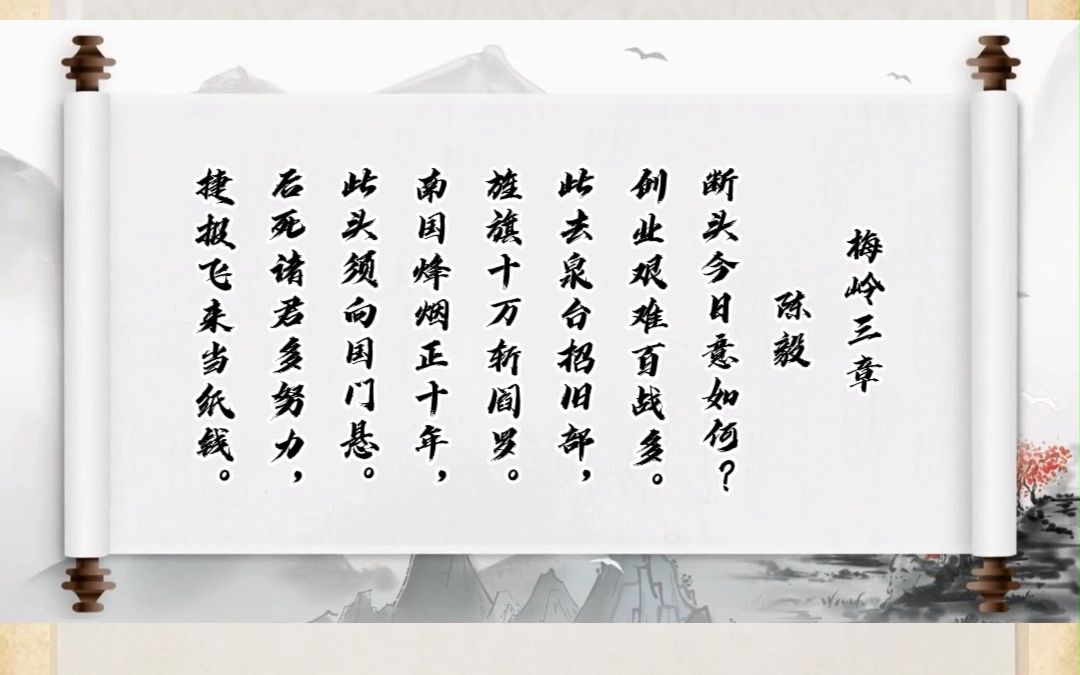 梅岭三章
陈毅
断头今日意如何？
创业艰难百战多。
此去泉台招旧部，
旌旗十万斩阎罗。
南国烽烟正十年，
此头须向国门悬。
后死诸君多努力，
捷报飞来当纸线。